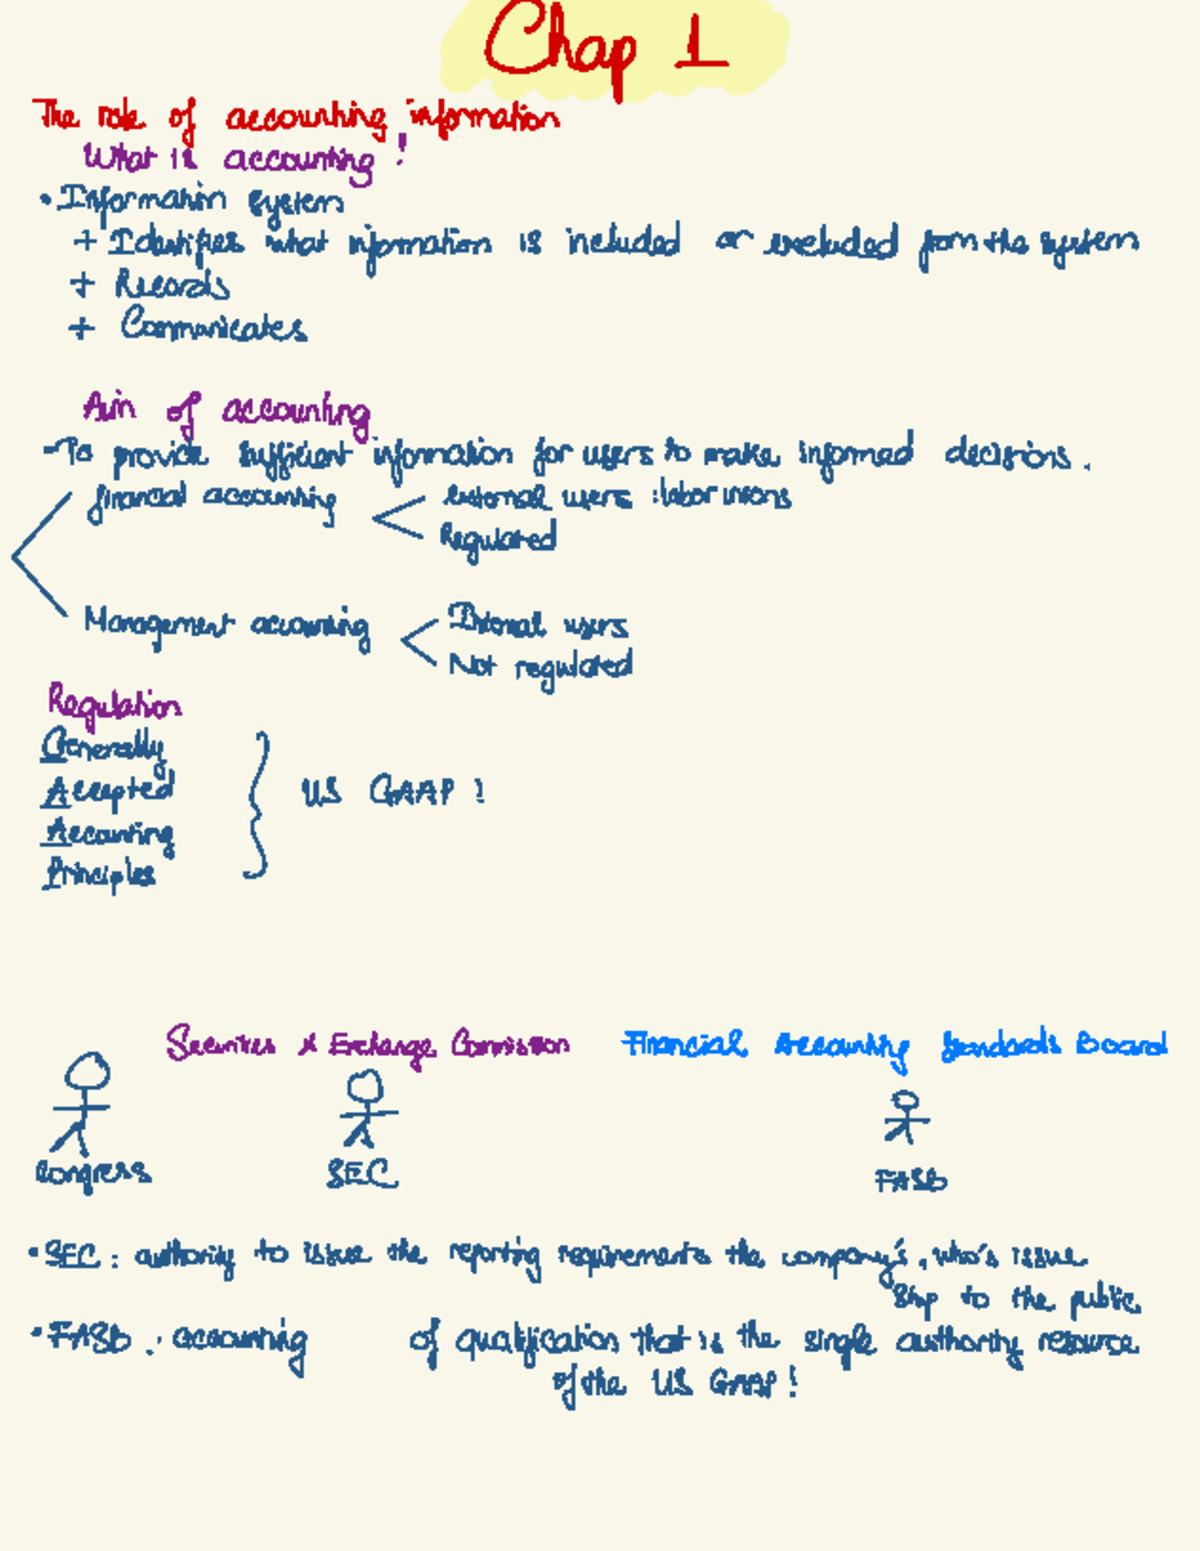 Chap 1
The role of accounting information
What is accounting !
• Information system
+ Identifies what information is included or excluded from the system
+ Records
+ Communicates
Aim of accounting
- To provide sufficient information for users to make informed decisions.
financial accounting
external users : labor unions
Regulated
Management accounting
Internal users
Not regulated
Regulation
Generally
Accepted
Accounting
Principles
US GAAP !
Securities & Exchange Commission
Financial Accounting Standards Board
Congress
SEC
FASB
• SEC : authority to issue the reporting requirements the company's, who's issue
to the public
• FASB : accounting of qualification that is the single authority resource
of the US GAAP !